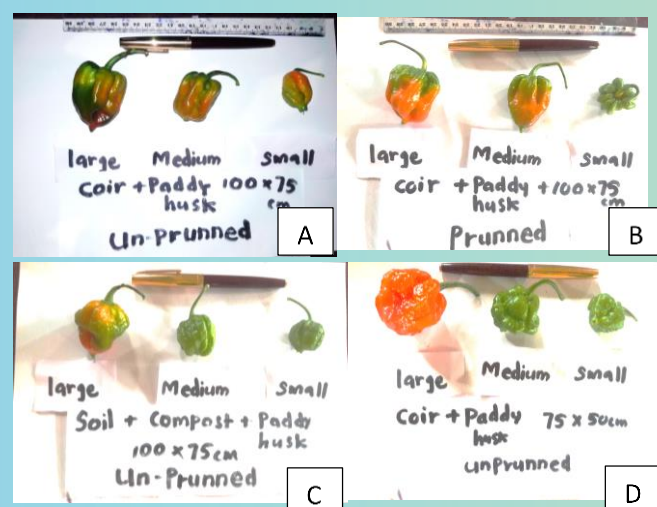 large Medium Small
Coir + Paddy 100 x 75
husk cm
Un-Prunned
A
large Medium Small
Coir + Paddy + 100 x 75
husk cm
Prunned
B
large Medium Small
Soil + Compost + Paddy
100 x 75cm husk
Un-Prunned
C
large Medium Small
Coir + Paddy 75 x 50cm
husk
unprunned
D